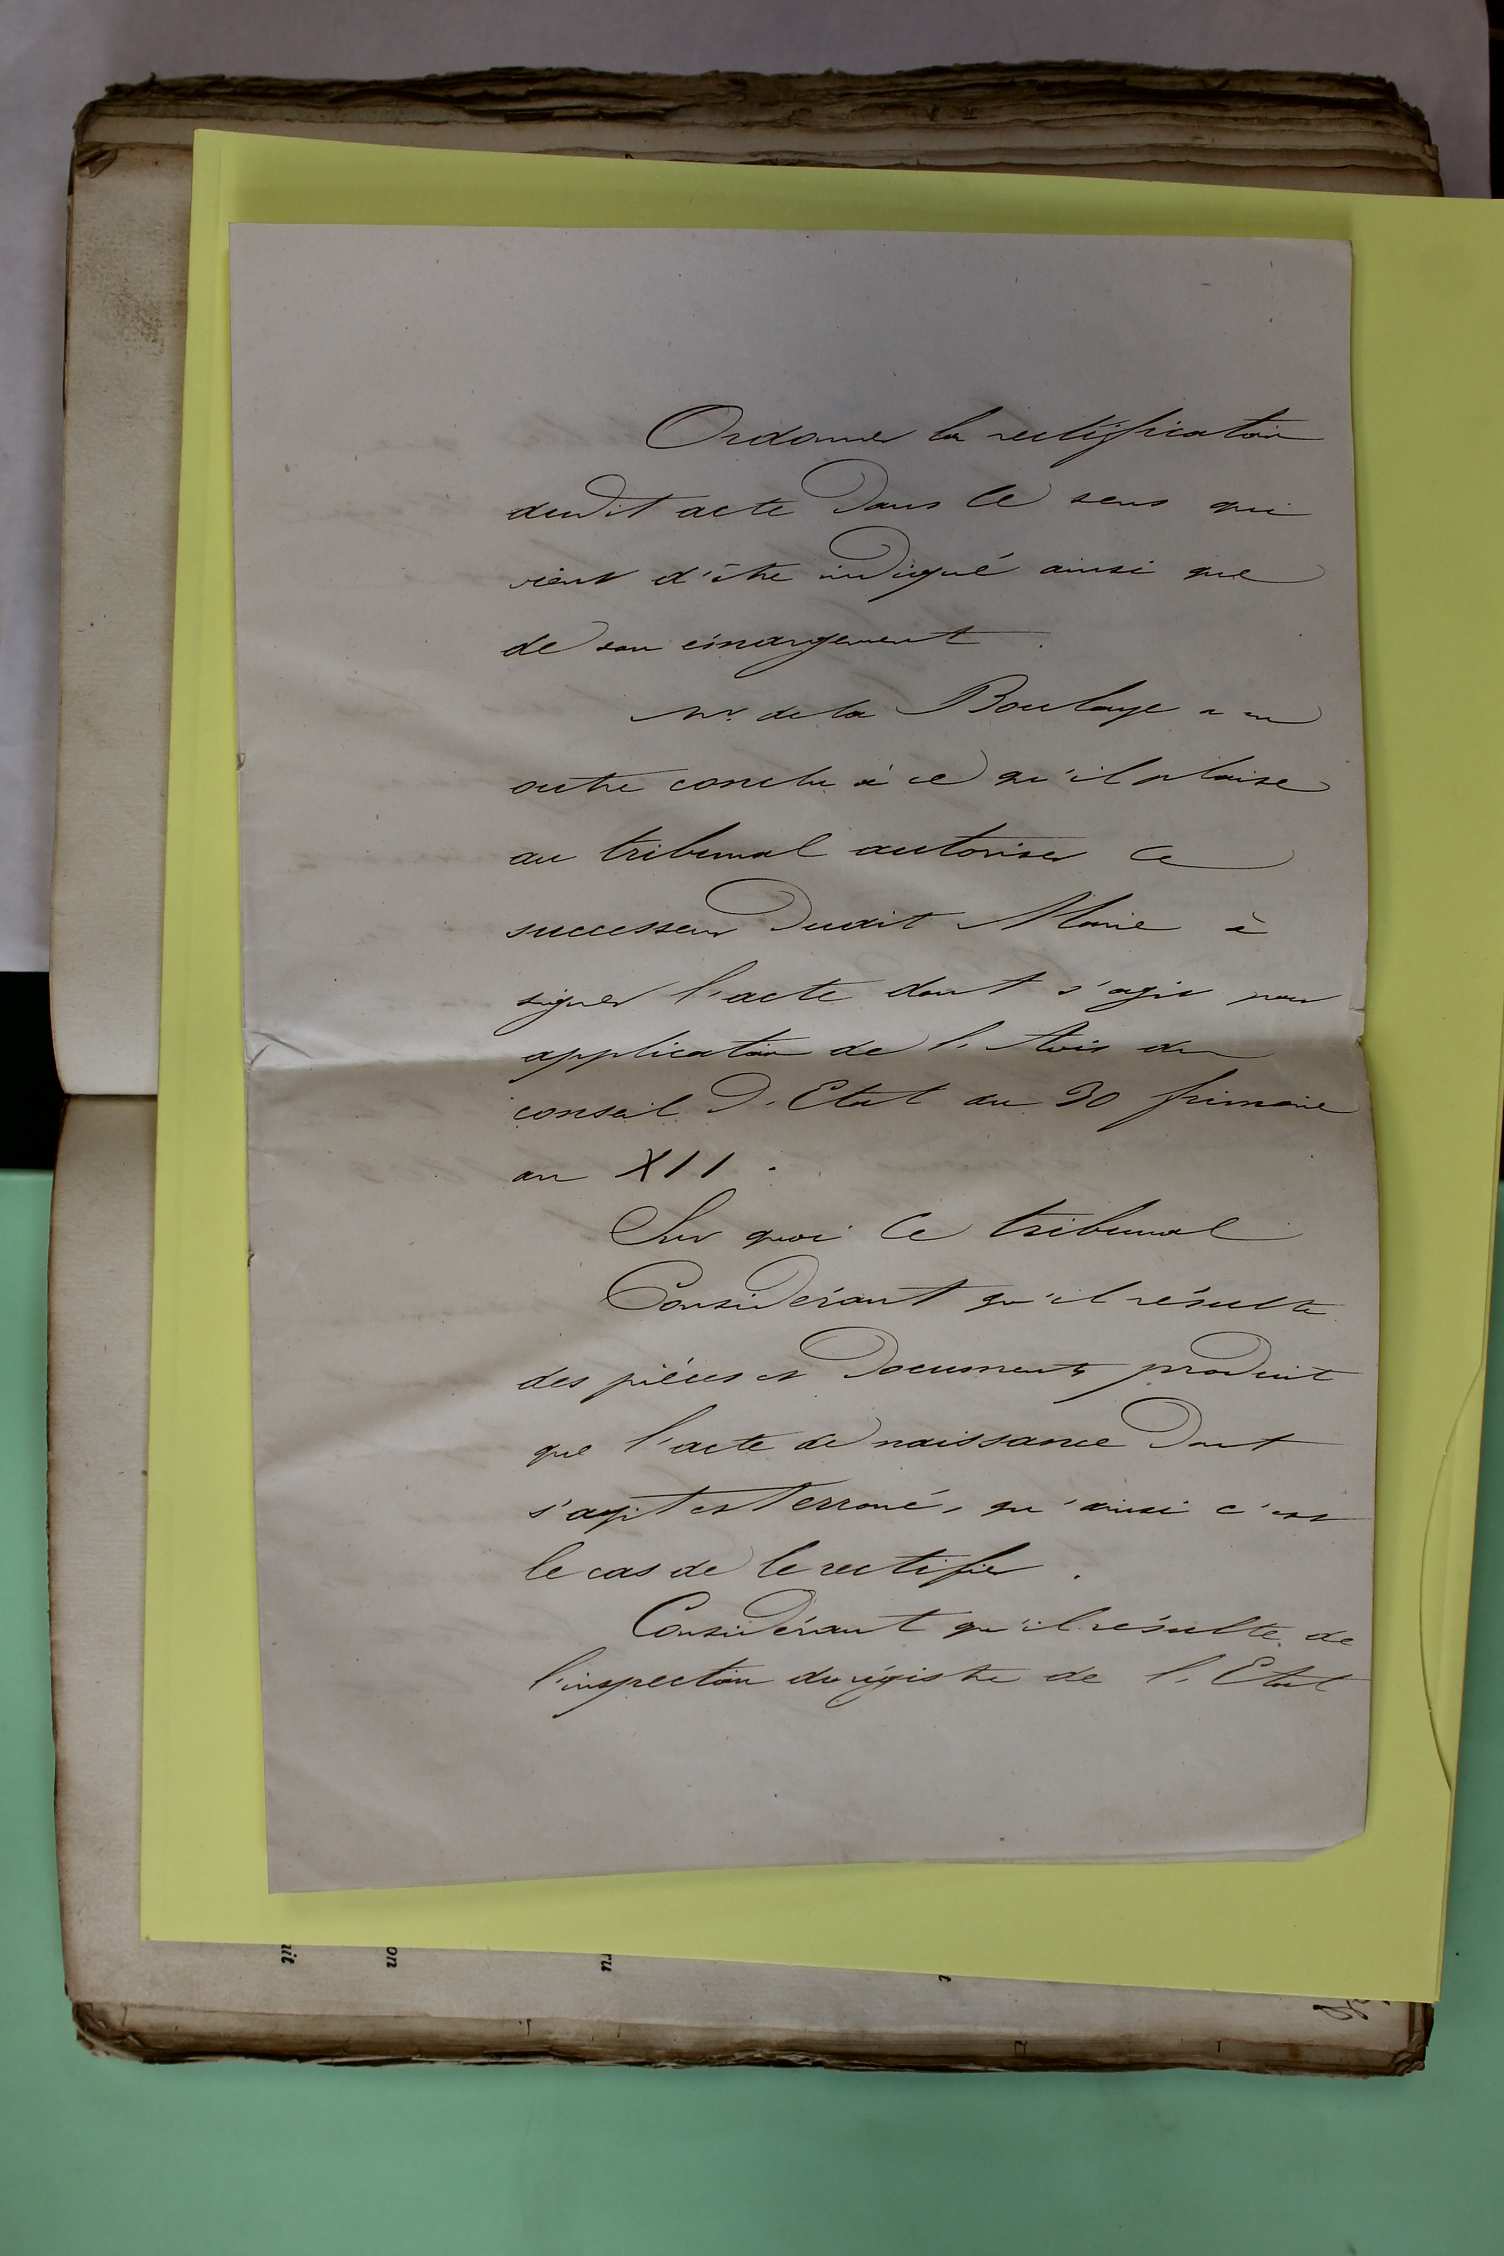 Ordonner la rectification
dudit acte dans le sens qui
vient d'être indiqué ainsi que
de son émargement.
Mr. de la Boulaye a en
outre conclu à ce qu'il plaise
au tribunal autoriser le
successeur dudit Maire à
signer l'acte dont s'agit par
application de l'Avis du
conseil d'Etat du 30 frimaire
an XII.
Sur quoi le tribunal
Considérant qu'il résulte
des pièces et documents produit
que l'acte de naissance dont
s'agit est erroné, qu'ainsi c'est
le cas de le rectifier.
Considérant qu'il résulte de
l'inspection du régistre de l'Etat
uit
on
ru
t